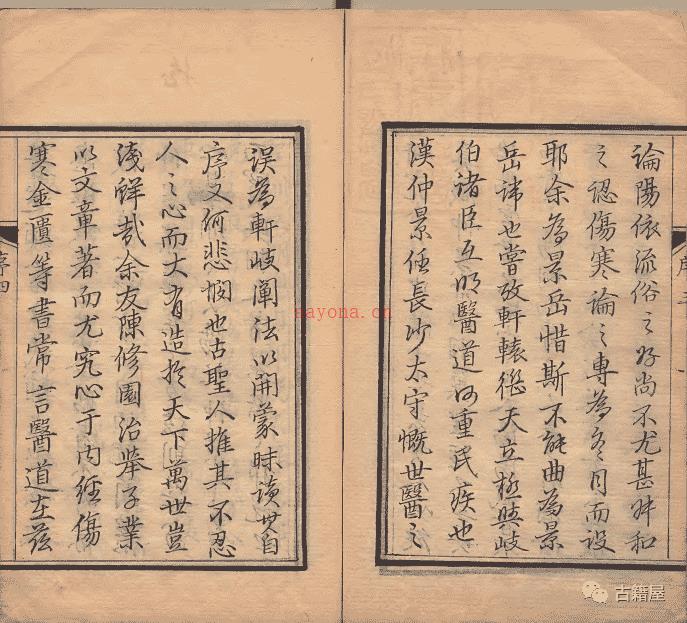 序三
論陽依流俗之好尚不尤甚叔和
之認傷寒論之專為冬月而設
耶余為景岳惜斯不能曲為景
岳諱也嘗攷軒轅繼天立極與岐
伯諸臣互明醫道重民疾也
漢仲景任長沙太守慨世醫之
誤為軒岐闡法以開蒙昧讀其自
序又何悲憫也古聖人推其不忍
人之心而大有造於天下萬世豈
淺鮮哉余友陳修園治舉子業
以文章著而尤究心于內經傷
寒金匱等書常言醫道在茲
序四
aayona.cn
古籍屋